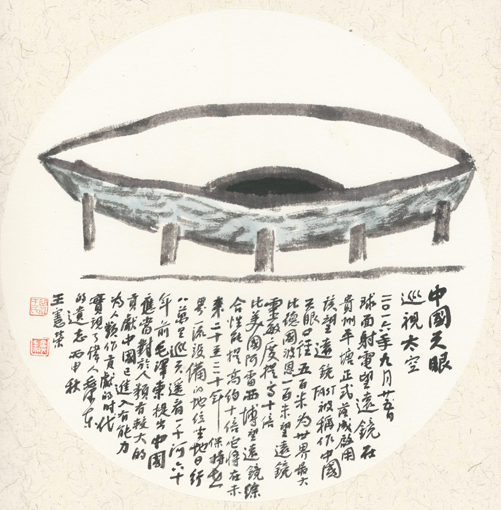 中國天眼
巡視太空
二〇一六年九月廿五日
球面射電望遠鏡在
貴州平塘正式落成啟用
該望遠鏡FAST被稱作中國
天眼口徑五百米為世界最大
比德國波恩一百米望遠鏡
靈敏度提高十倍
比美國阿雷西博望遠鏡綜
合性能提高約十倍它將在未
來二十至三十年保持世
界一流設備的地位坐地日行
八萬里巡天遙看一千河六十
年前毛澤東提出中國
應當對於人類有較大的
貢獻中國已進入有能力
為人類作貢獻的時代
實現了偉人毛澤東
的遺志丙申秋
王憲榮